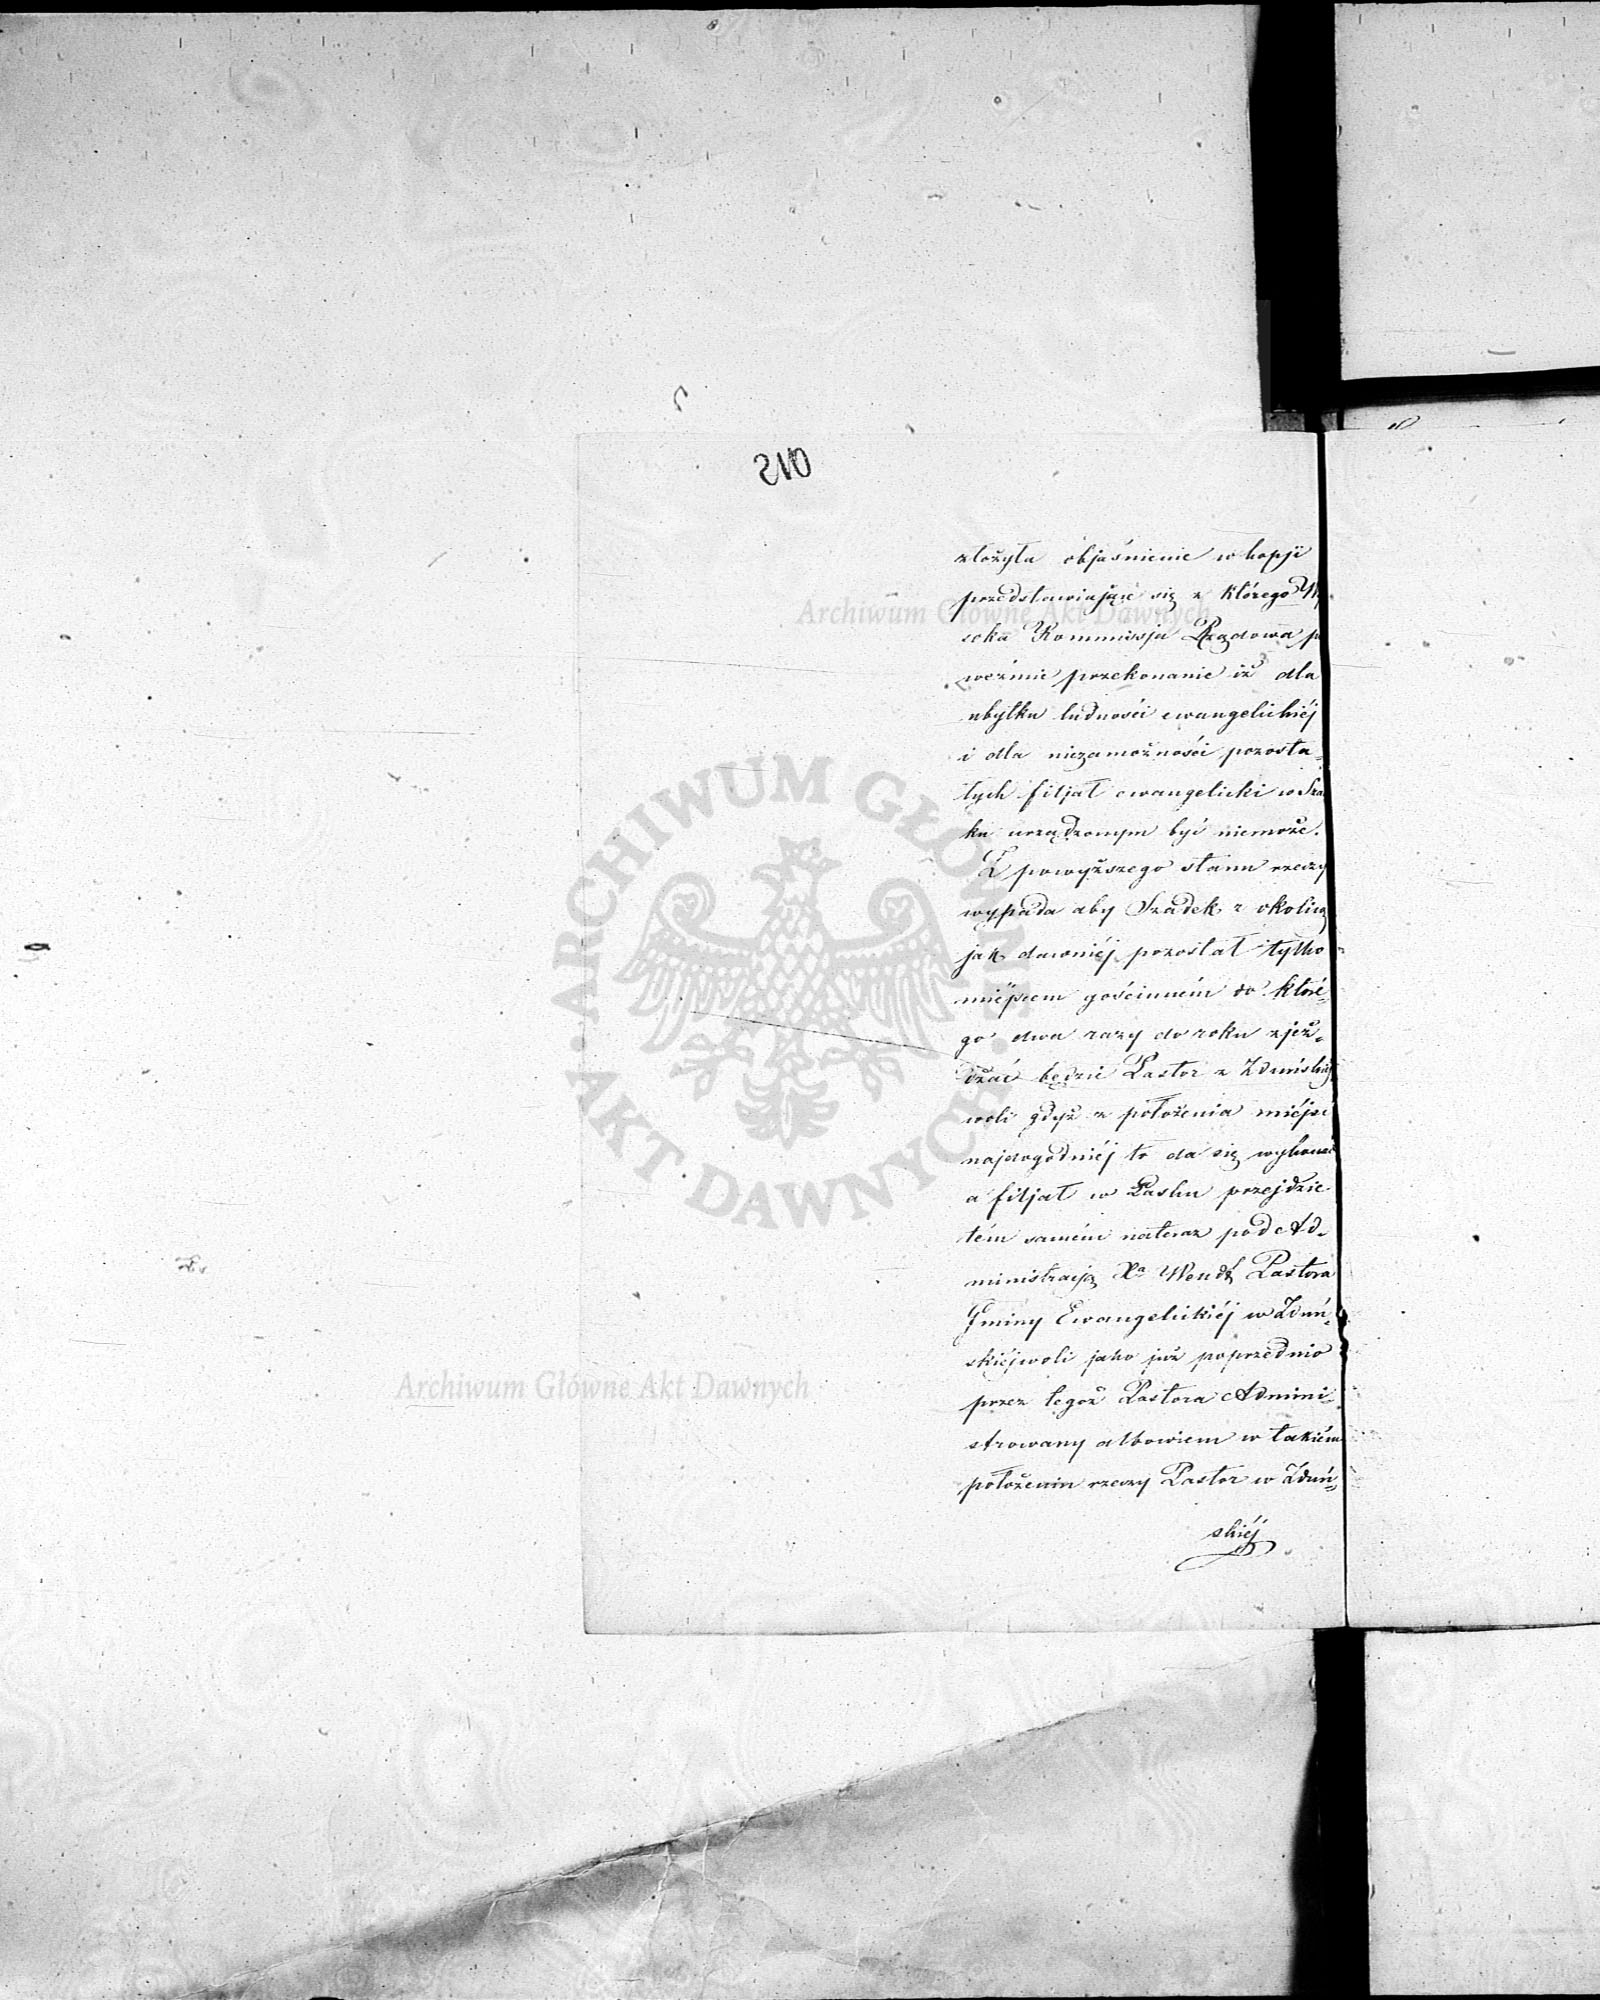 złożyła objaśnienie w kopji
przedstawiające się z którego Wy
soka Kommissja Rządowa po
weźmie przekonanie iż dla
ubytku ludności ewangelickiéj
i dla niezamożności pozosta=
łych filjał ewangelicki w Sza
ku urządzonym być niemoże.
Z powyższego stanu rzeczy
wypada aby Szadek z okolicą
jak dawniéj pozostał tylko
miéjscem gościnném do które-
go dwa razy do roku zjeż-
dżać będzie Pastor z Zduńskiéj
woli gdyż z położenia miéjsc
najdogodniéj to da się wykonać
a filjał w Łasku przejdzie
tém samém nateraz pod Ad-
ministracją Xa Wendt Pastora
Gminy Ewangelickiéj w Zduń-
skiéjwoli jako już poprzednio
przez tegoż Pastora Admini-
strowany albowiem w takiém
położeniu rzeczy Pastor w Zduń=
skiéj
Archiwum Główne Akt Dawnych
ARCHIWUM GŁÓWNE AKT DAWNYCH
Archiwum Główne Akt Dawnych